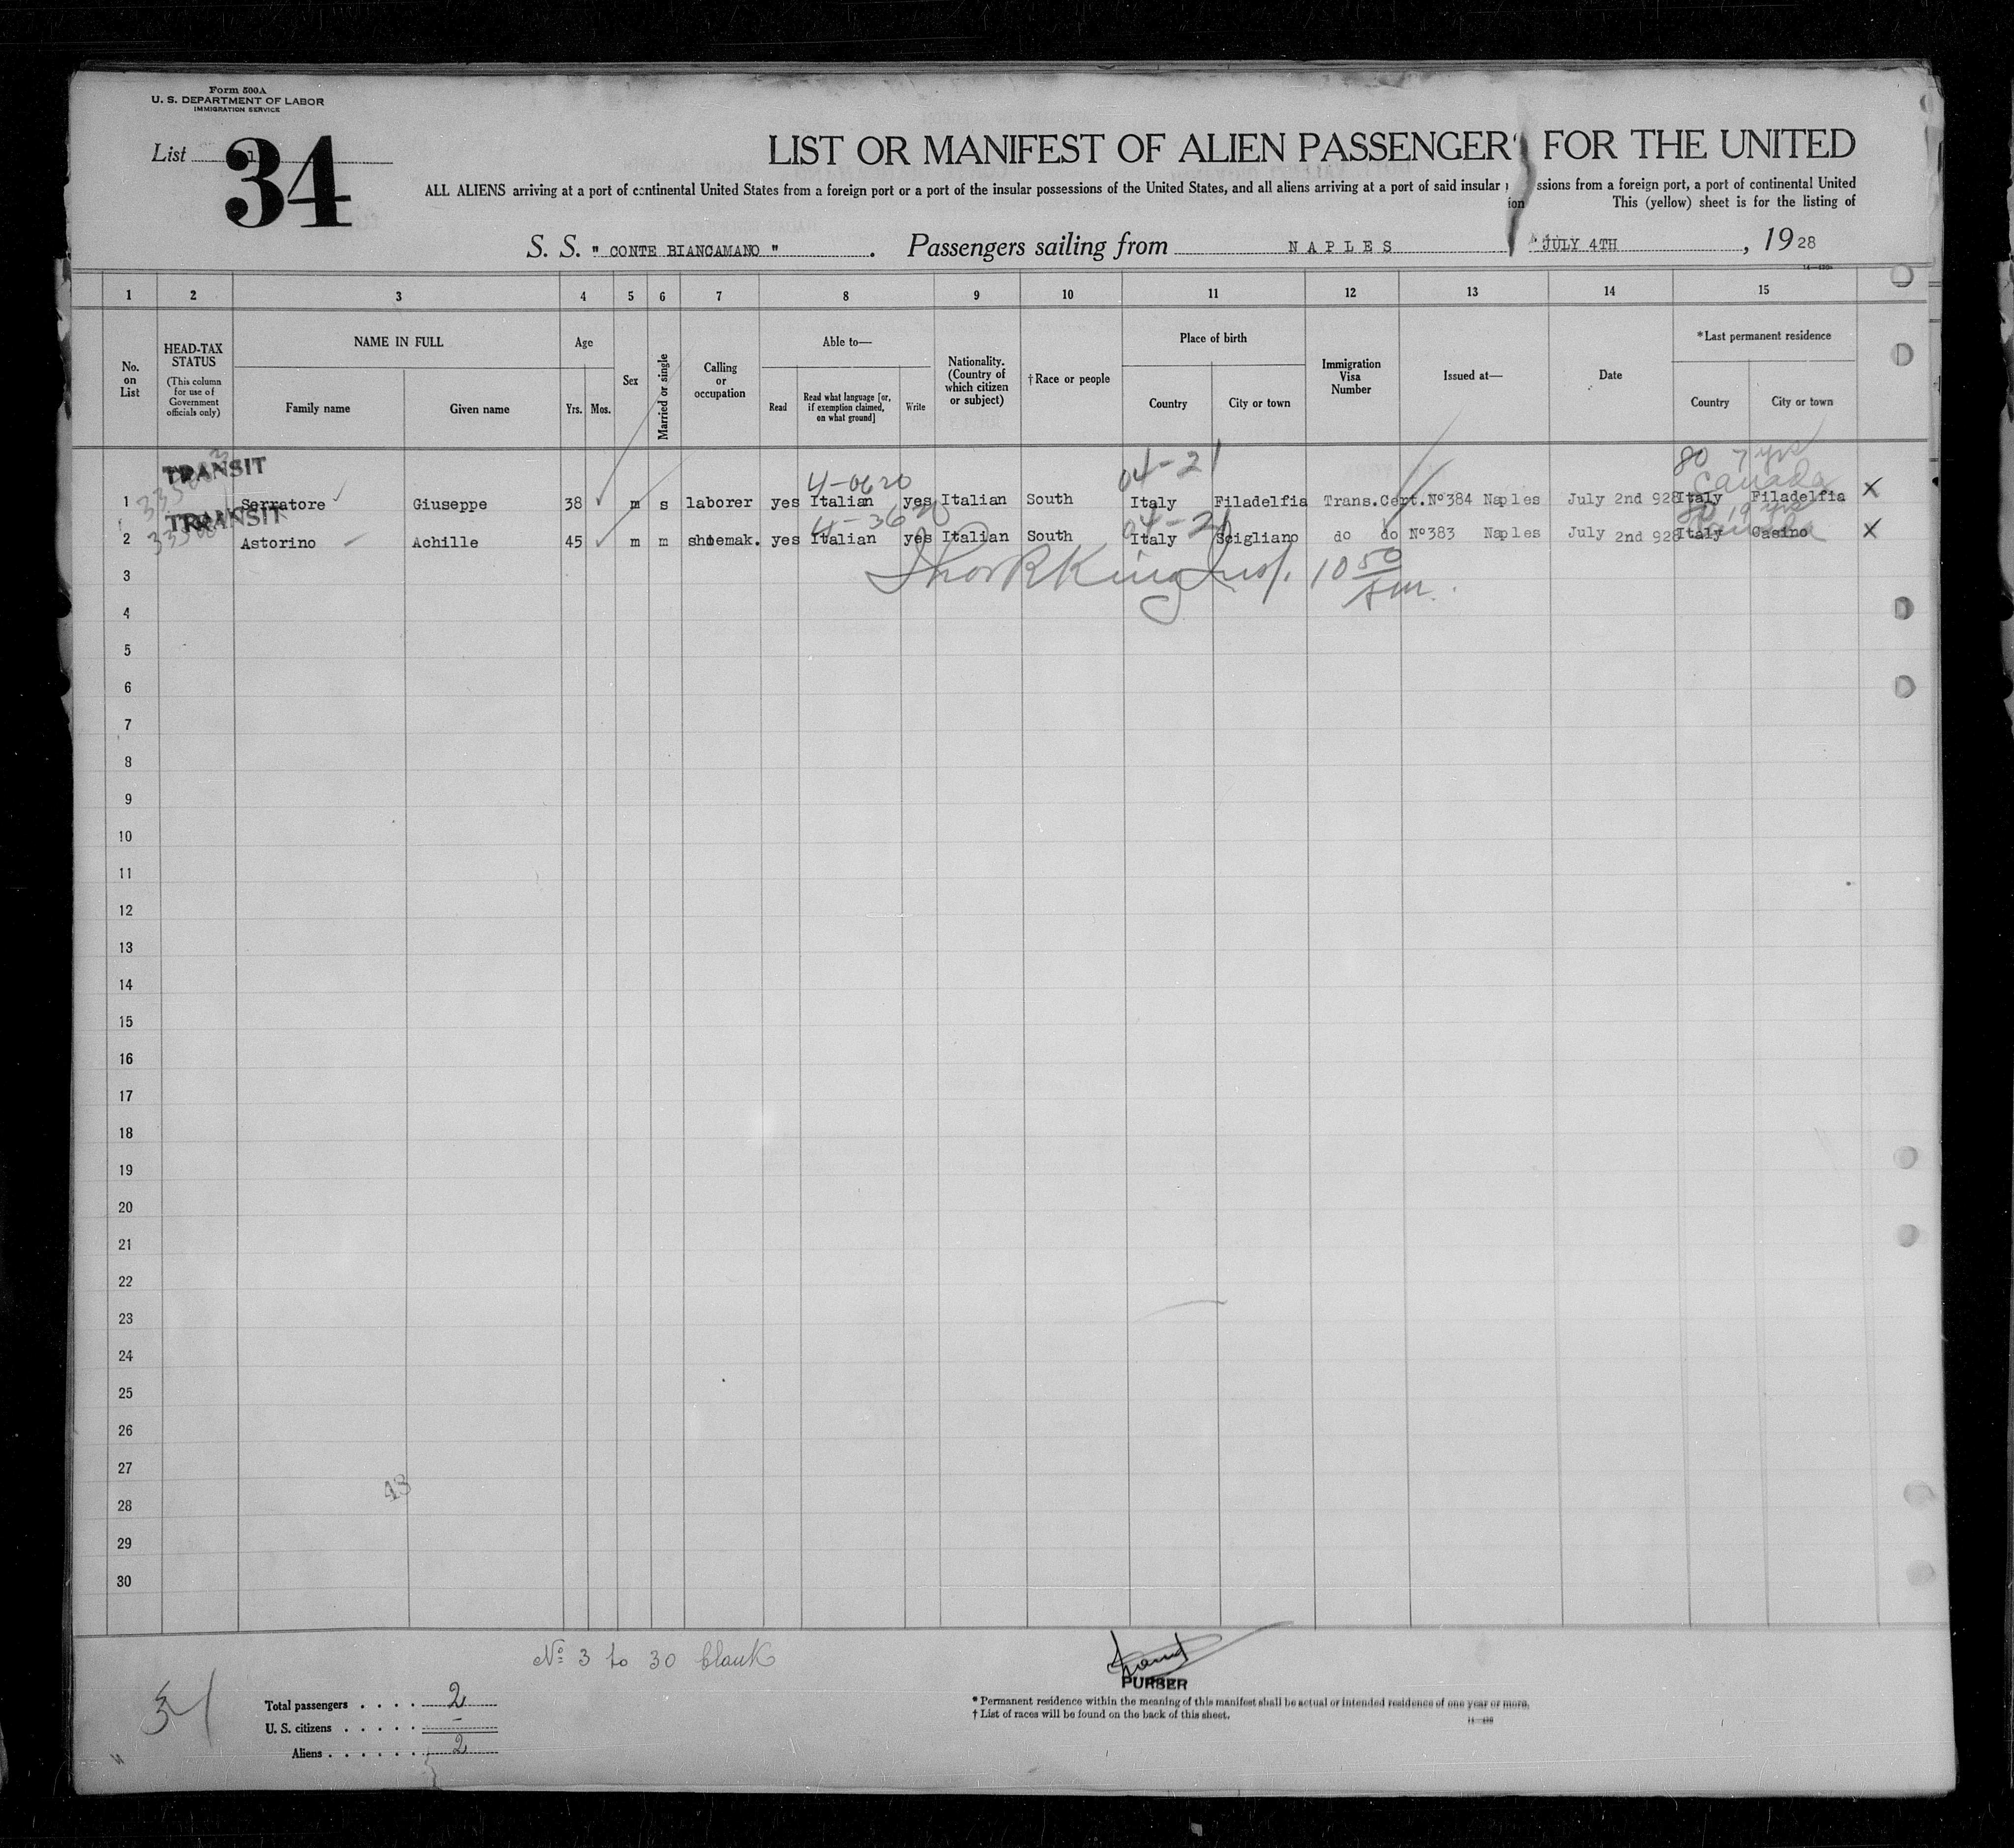 Form 500A
U. S. DEPARTMENT OF LABOR
IMMIGRATION SERVICE
List 1
34
LIST OR MANIFEST OF ALIEN PASSENGER FOR THE UNITED
ALL ALIENS arriving at a port of continental United States from a foreign port or a port of the insular possessions of the United States, and all aliens arriving at a port of said insular ssions from a foreign port, a port of continental United
ion This (yellow) sheet is for the listing of
S. S. " CONTE BIANCAMANO " . Passengers sailing from NAPLES JULY 4TH , 1928
1 2 3 4 5 6 7 8 9 10 11 12 13 14 15
No. on List
HEAD-TAX STATUS
(This column for use of Government officials only)
NAME IN FULL
Family name Given name
Age
Yrs. Mos.
Sex
Married or single
Calling or occupation
Able to—
Read Read what language [or, if exemption claimed, on what ground] Write
Nationality. (Country of which citizen or subject)
†Race or people
Place of birth
Country City or town
Immigration Visa Number
Issued at—
Date
*Last permanent residence
Country City or town
TRANSIT 4-0620 04-21 80 7 yrs
Canada
1 Serratore Giuseppe 38 m s laborer yes Italian yes Italian South Italy Filadelfia Trans.Cert.Nº384 Naples July 2nd 928 Italy Filadelfia X
TRANSIT 04-21 80 19 yrs
Canada
2 Astorino Achille 45 m m shoemak. yes Italian yes Italian South Italy Scigliano do do Nº383 Naples July 2nd 928 Italy Casino X
3 King Insp. 10 50
4
5
6
7
8
9
10
11
12
13
14
15
16
17
18
19
20
21
22
23
24
25
26
27
48
28
29
30
Nº 3 to 30 blank
PURSER
34
Total passengers . . . . 2
U. S. citizens . . . . . –
Aliens . . . . . . 2
* Permanent residence within the meaning of this manifest shall be actual or intended residence of one year or more.
† List of races will be found on the back of this sheet.